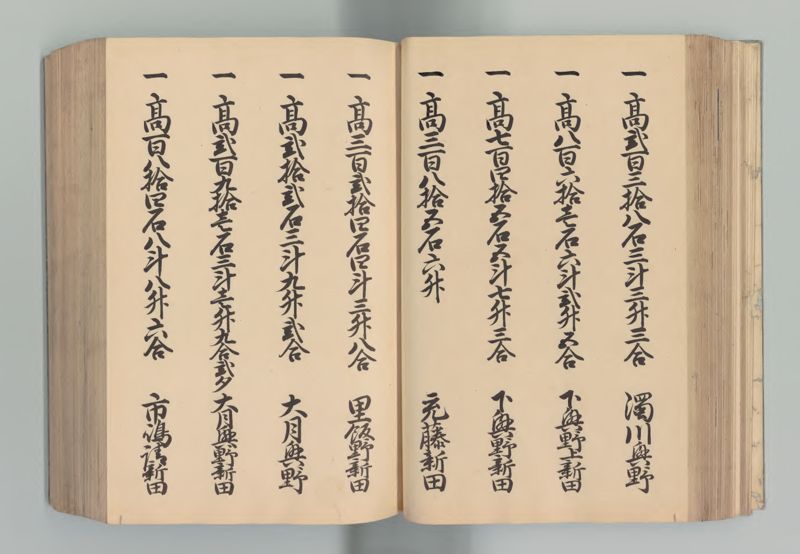 一 高弐百三拾八石三斗三升三合 濁川興野
一 高八百六拾壱石六斗弐升五合 下興野上新田
一 高七百四拾五石五斗七升三合 下興野新田
一 高三百八拾五石六升 元藤新田
一 高三百弐拾四石四斗三升八合 里飯野新田
一 高弐拾弐石三斗九升弐合 大月興野
一 高弐百九拾壱石三斗壱升九合弐夕 大月興野新田
一 高百八拾四石八斗八升六合 市嶋新田